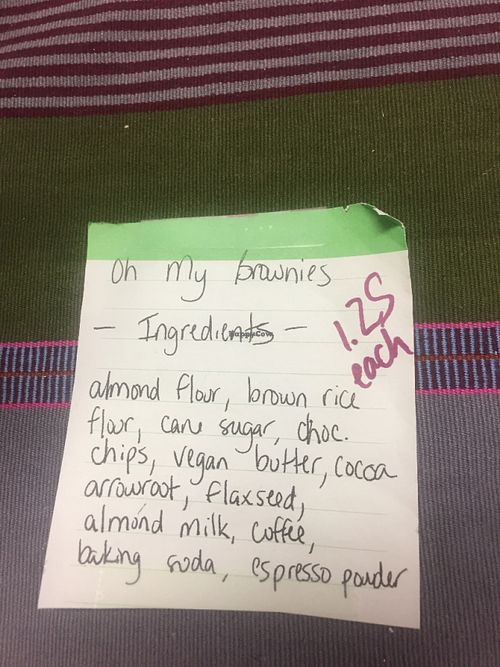 Oh My brownies
- Ingredients -
1.25
each
almond flour, brown rice
flour, cane sugar, choc.
chips, vegan butter, cocoa
arrowroot, flaxseed,
almond milk, coffee,
baking soda, espresso powder
HappyCow